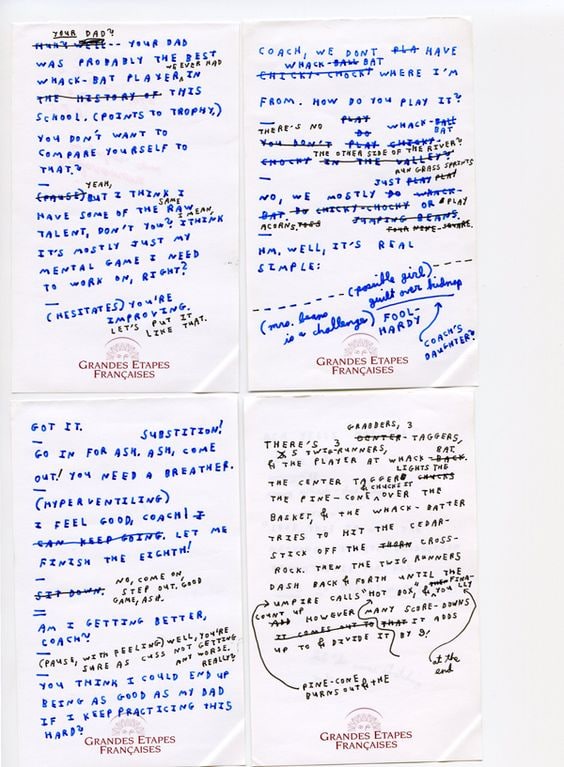 YOUR DAD?!
HUH? WELL--- YOUR DAD
WAS PROBABLY THE BEST
WE EVER HAD
WHACK-BAT PLAYER, IN
THE HISTORY OF THIS
SCHOOL. (POINTS TO TROPHY.)
YOU DON'T WANT TO
COMPARE YOURSELF TO
THAT.?
—
YEAH,
(PAUSE) BUT I THINK I
SAME
HAVE SOME OF THE RAW
I MEAN,
TALENT, DON'T YOU? I THINK
IT'S MOSTLY JUST MY
MENTAL GAME I NEED
TO WORK ON, RIGHT?
—
(HESITATES) YOU'RE
IMPROVING.
LET'S PUT IT
LIKE THAT.
GRANDES ETAPES
FRANÇAISES
COACH, WE DONT PLA HAVE
WHACK-BALL BAT
CHICKY-CHOCKY WHERE I'M
FROM. HOW DO YOU PLAY IT?
—
THERE'S NO PLAY WHACK-BALL
DO BAT
YOU DON'T PLAY CHICKY-
THE OTHER SIDE OF THE RIVER?
CHOCKY IN THE VALLEY?
—
RUN GRASS SPRINTS
JUST PLAY PLAY
NO, WE MOSTLY DO WHACK-
BAT. DO CHICKY-CHOCKY OR & PLAY
ACORNS, JUMPING BEANS,
FOUR NINE-SQUARE.
—
HM. WELL, IT'S REAL
SIMPLE:
(possible girl)
guilt over kidnap
(mrs. beans
is a challenge) FOOL-
HARDY
COACH'S
DAUGHTER?
GRANDES ETAPES
FRANÇAISES
GOT IT.
—
SUBSTITION!
GO IN FOR ASH. ASH, COME
OUT! YOU NEED A BREATHER.
—
(HYPERVENTILING)
I FEEL GOOD, COACH! I
CAN KEEP GOING. LET ME
FINISH THE EIGHTH!
—
SIT DOWN. NO, COME ON,
STEP OUT. GOOD
GAME, ASH.
AM I GETTING BETTER,
COACH?
—
(PAUSE, WITH FEELING) WELL, YOU'RE
SURE AS CUSS NOT GETTING
ANY WORSE.
—
REALLY?
YOU THINK I COULD END UP
BEING AS GOOD AS MY DAD
IF I KEEP PRACTICING THIS
HARD?
GRANDES ETAPES
FRANÇAISES
GRABBERS, 3
THERE'S 3 CENTER-TAGGERS,
5 TWIG-RUNNERS, BAT.
& THE PLAYER AT WHACK-BACK.
LIGHTS THE
THE CENTER TAGGER CHUCKS
& CHUCKS IT
THE PINE-CONE OVER THE
BASKET, & THE WHACK-BATTER
TRIES TO HIT THE CEDAR-
STICK OFF THE THORN CROSS-
ROCK. THEN THE TWIG RUNNERS
DASH BACK & FORTH UNTIL THE
UMPIRE CALLS "HOT BOX," & THEN FINA-
COUNT UP YOU LLY
ADD HOWEVER MANY SCORE-DOWNS
IT COMES OUT TO THAT IT ADDS
UP TO & DIVIDE IT BY 9!
at the
end
PINE-CONE
BURNS OUT & THE
GRANDES ETAPES
FRANÇAISES